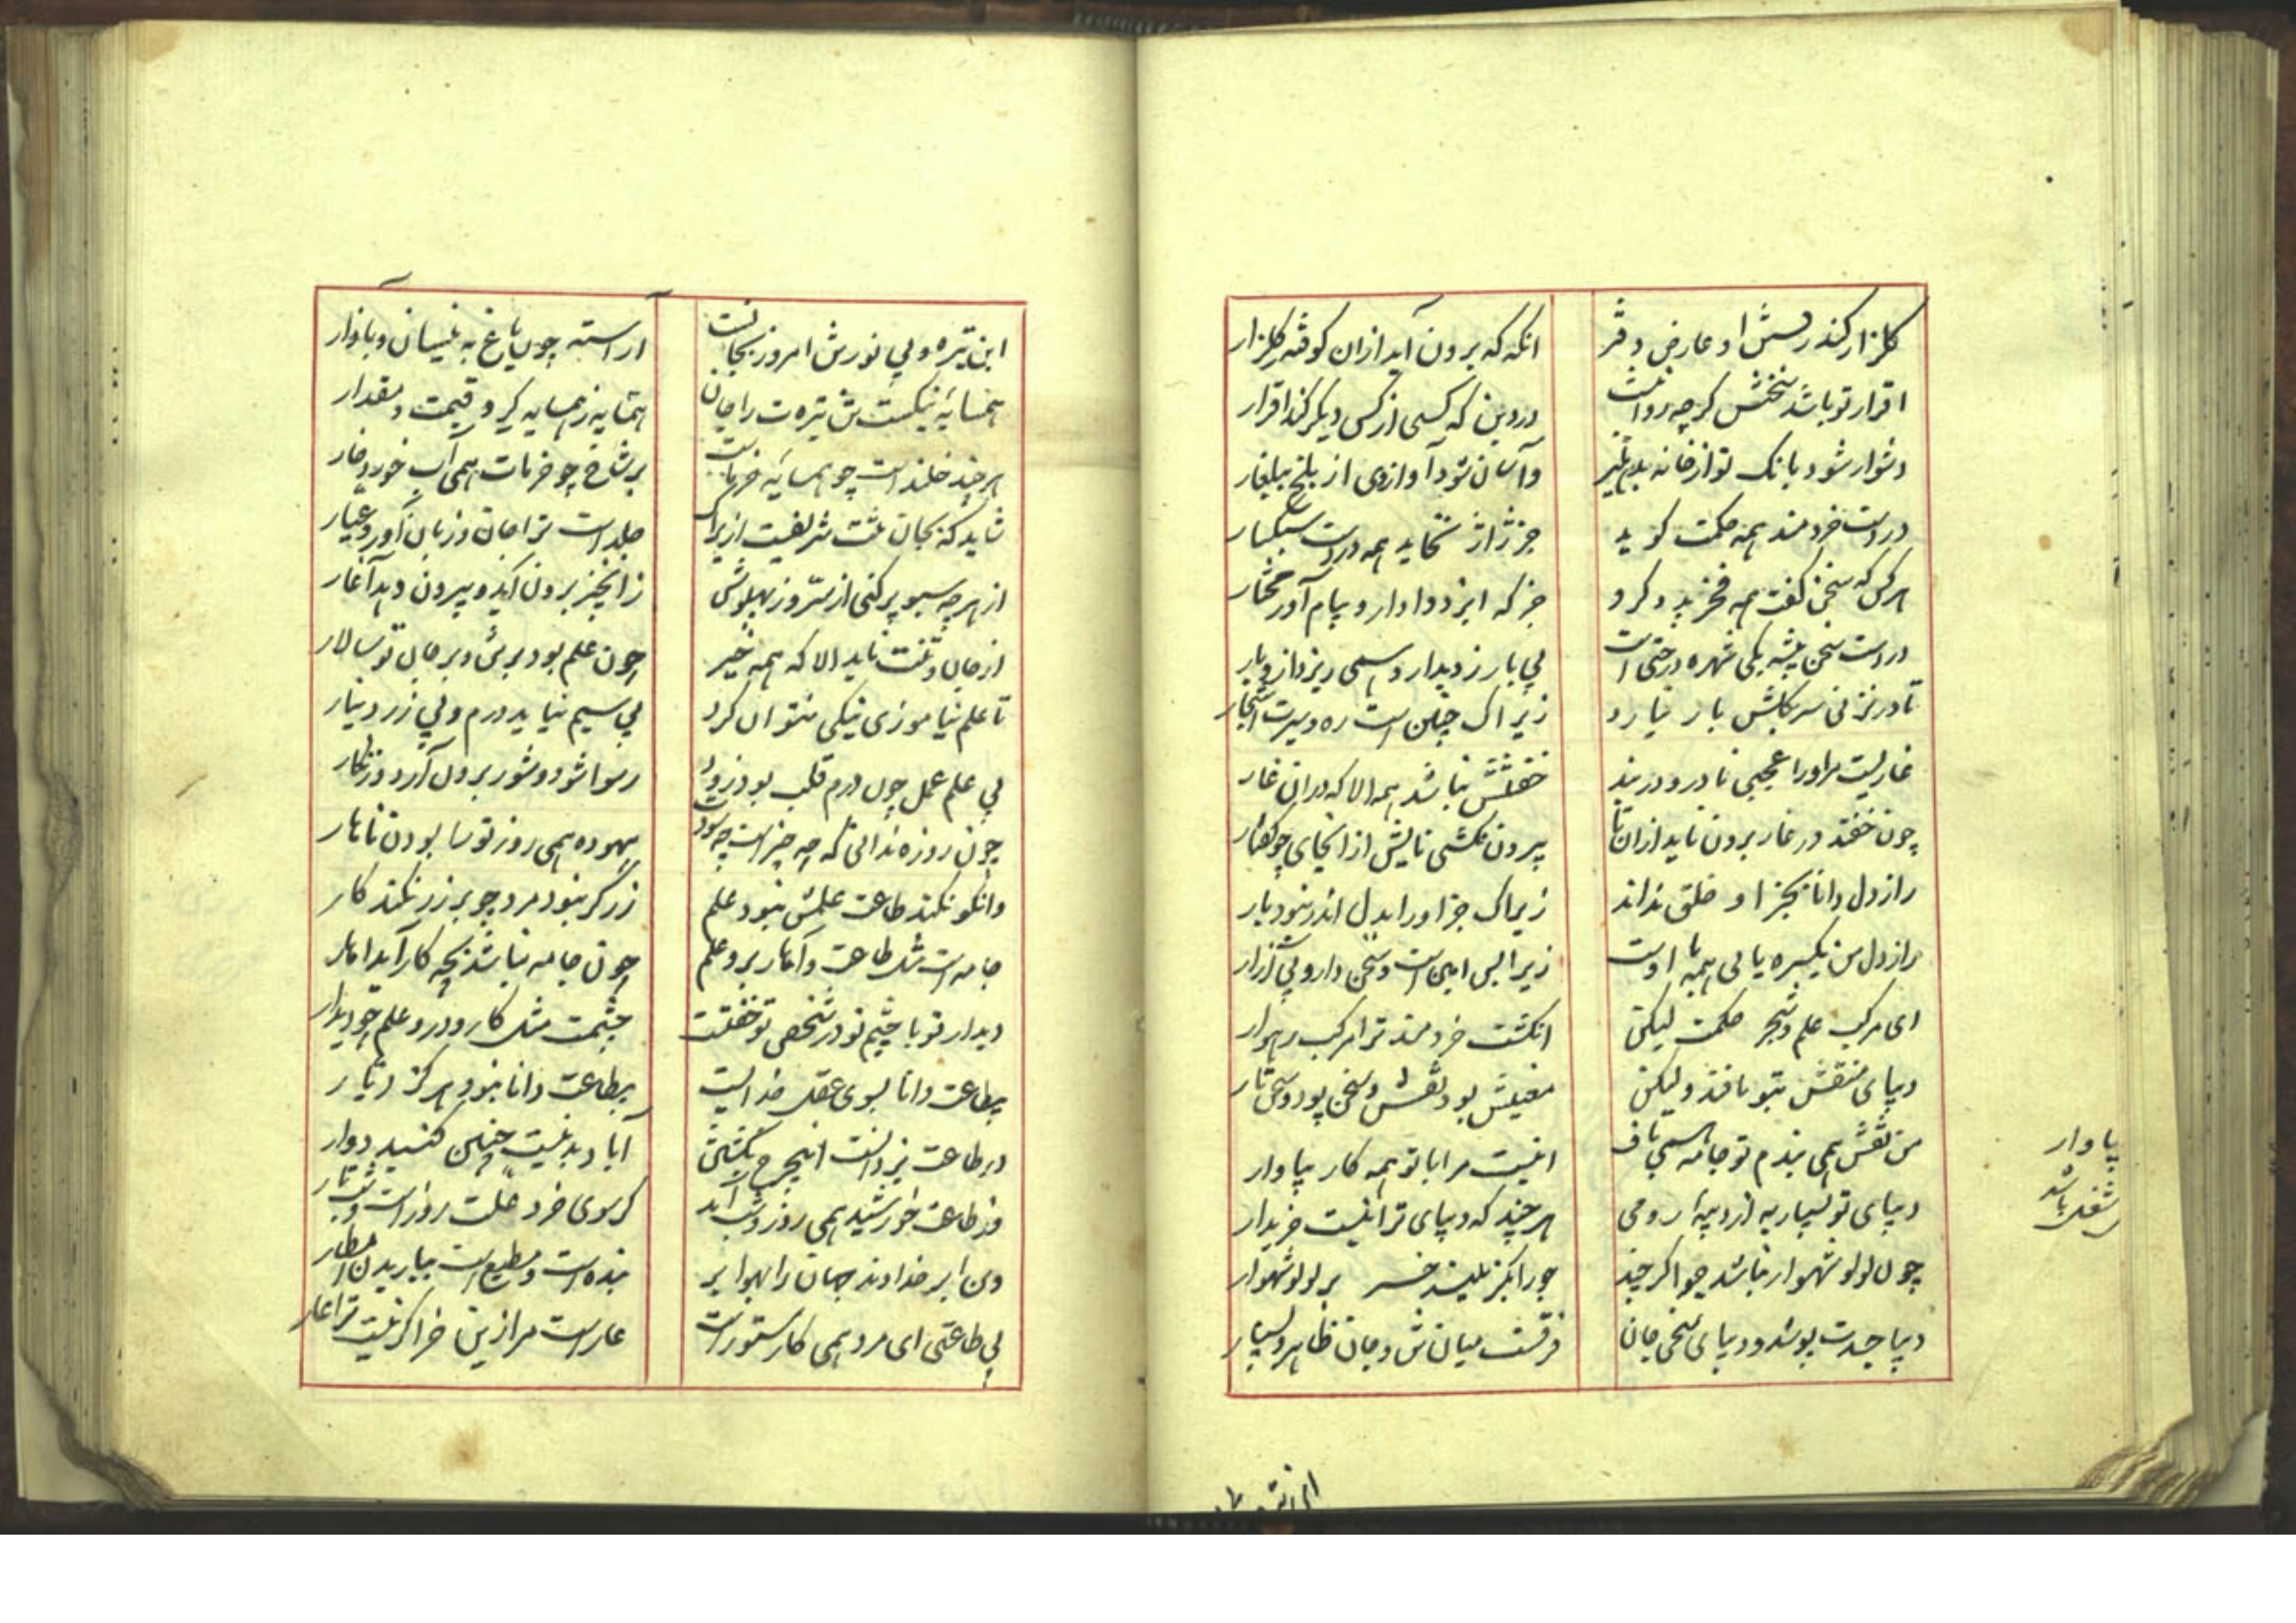 گلزار کند رویش او عارض دفتر
انکه که برون آید ازان کوفته گلزار
اقرار تو باشد سخنش گرچه روا نیست
در دین که کسی از کس دیگر کند اقرار
دشوار شود بانک تو از خانه بدهلیز
وآسان شود آوازوی از بلخ ببلغار
در دست خردمند همه حکمت گوید
جز ژاژ نخاید همه در دست سبکسار
هرکس که سخن گفت همه فخر بدو کرد
جز که ایزد دادار و پیام آور مختار
در دست سخن پیشه یکی شهره درختی است
بی بار ز دیدار همی ریزد ازو بار
تا در نزنی سر بگلش بار نیارد
زیراک چنین است ره و سیرت اشجار
غاریست مر او را عجبی نادر و در بند
خفتنش نباشد همه الا که دران غار
چون خفته در غار برون ناید ازان تا
بیرون نکشی نایش ازانجای چو کفتار
راز دل دانا بجز او خلق نداند
زیراک جز او را بدل اندر نبود بار
راز دل من یکسره یابی همه با اوست
زیرا بس امین است و سخن دار و بی آزار
ای مرکب علم و شجر حکمت لیکن
انکشت خردمند ترا مرکب رهوار
دیبای منقش بتو بافند ولیکن
معنیش بود نقش و سخن پود و سخن تار
من نقش همی بندم تو جامه همی باف
اینست مرا با تو همه کار بپاوار
دیبای تو بسیار به از دیبه رومی
هر چند که دیبای ترا نیست خریدار
چون لولو شهوار نباشد جو اگر چند
جو را بگزیند خر بر لولو شهوار
دیبا جسدت پوشد و دیبای سخن جان
فرقست میان تن و جان ظاهر و بسیار
پاوار
شغل باشد
این تیره
این تیره و بی نور تن امروز بجانست
اراسته چون باغ به نیسان و بآزار
همسایه نیکست تن تیره ت را جان
همسایه ز همسایه گیرد قیمت و مقدار
هر چند خلنده است چو همسایه خرماست
بر شاخ چو خرمات همی آب خورد خار
شاید که بجان تنت شریفست ازیراک
جلدست ترا جان و زبان آور و عیار
از هر چه سبو پر کنی از سر و ز پهلوش
زان چیز برون آید و بیرون دهد آغار
از جان و تنت ناید الا که همه خیر
چون علم بود بر تن و بر جان تو سالار
تا علم نیاموزی نیکی نتوان کرد
بی سیم نیاید درم و بی زر دینار
بی علم عمل چون درم قلب بود زود
رسوا شود و شور برون آرد و زنگار
چون روزه ندانی که چه چیز است چه سود است
بیهوده همی روز تو سا بودن ناهار
وانکو نکند طاعت علمش نبود علم
زرگر نبود مرد چو بر زر نکند کار
جامه است مثل طاعت و آهار برو علم
چون جامه نباشد بچه کار آید اهار
دیدار تو با چشم تو در شخص تو جفتست
چشمت مثل کار و درو علم چو دیدار
بطاعت دانا بسوی عقل خدایست
بیطاعت دانا نبود هرگز دیار
در طاعت یزدانست این چرخ بگشتن
آباد بدینست چنین گنبد دوار
وز طاعت خورشید همی روز و شب آید
کز سوی خرد علت روز است و شب تار
وین ابر خداوند جهان را بهوا بر
بنده است و مطیع است بباریدن امطار
بی طاعتی ای مرد همی کار ستور است
عار است مر ازین خر اگر نیست ترا عار